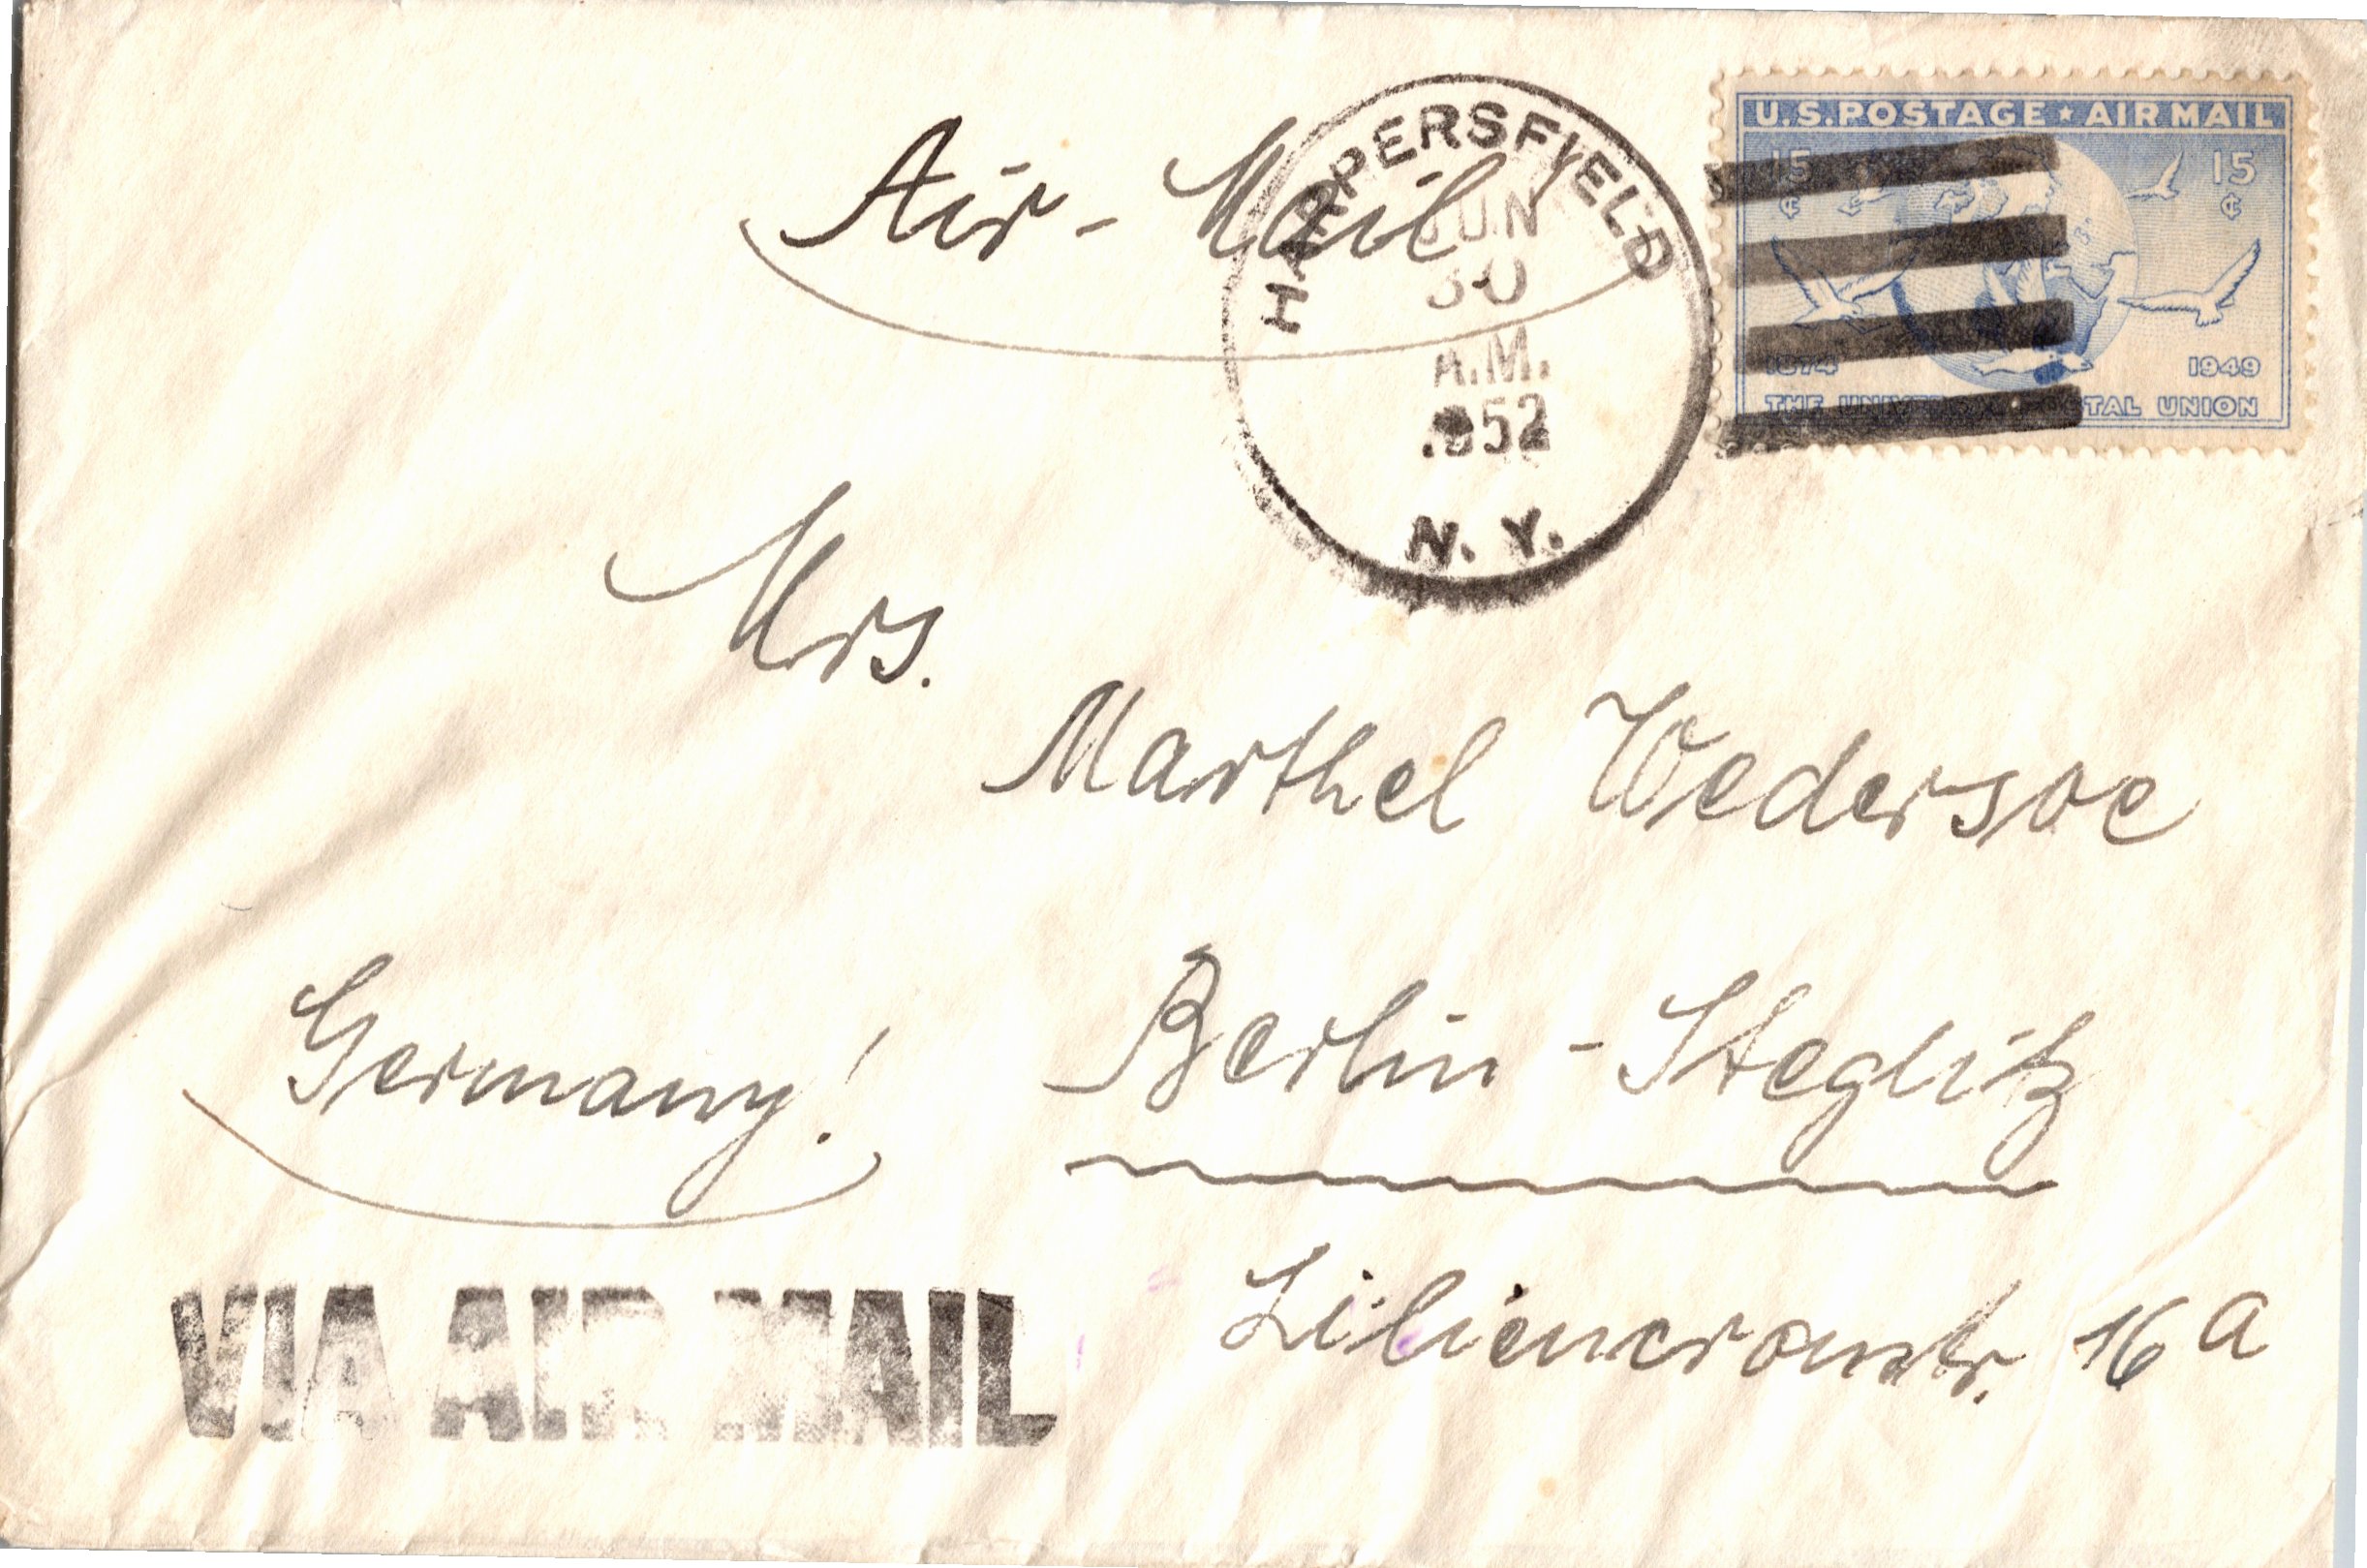 Air-Mail
HARPERSFIELD
JUN
30
A.M.
1952
N. Y.
U.S.POSTAGE ★ AIR MAIL
15 ¢
15 ¢
1874
1949
THE UNIVERSAL POSTAL UNION
Mrs.
Marthel Wedersoe
Germany!
Berlin-Steglitz
Liliencronstr. 16 a
VIA AIR MAIL